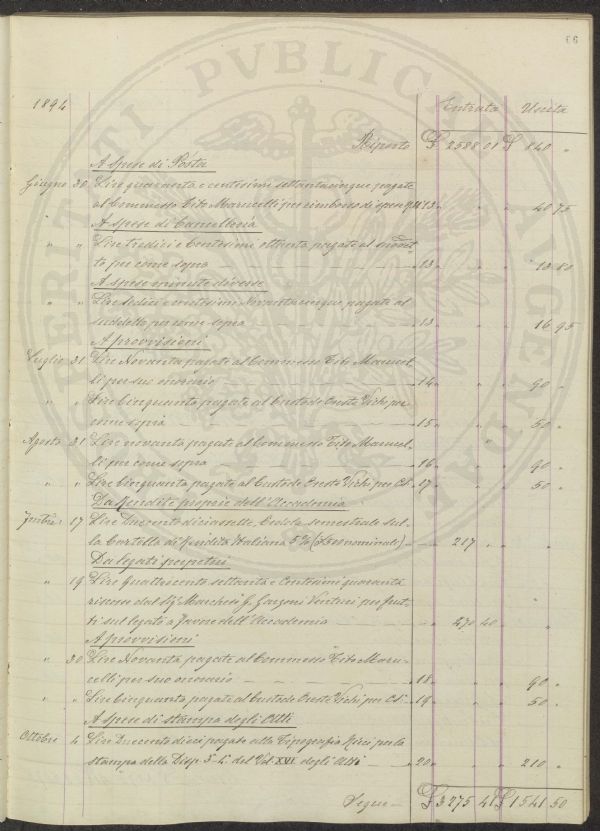 66
1894 Entrata Uscita
Riporto £ 2588 01 £ 840 "
A spese di Posta
Giugno 30 Lire quaranta e centesimi settantacinque pagate
al Commesso Tito Marucelli per rimborso di spese 13 " " 40 75
A spese di Cancelleria
" " Lire tredici e Centesimi ottanta pagate al
to per come sopra 13 " " 13 80
A spese minute diverse
" " Lire sedici e centesimi Novantacinque pagate al
suddetto per come sopra 13 " " 16 95
A provvisioni
Luglio 31 Lire Novanta pagate al Commesso Tito Marucel
li per suo onorario 14 " " 90 "
" " Lire Cinquanta pagate al Custode Oreste Vichi per
come sopra 15 " " 50 "
Agosto 31 Lire novanta pagate al Commesso Tito Marucel
li per come sopra 16 " " 90 "
" " Lire Cinquanta pagate al Custode Oreste Vichi per Cs. 17 " " 50 "
Da Rendite proprie dell'Accademia
17 Lire Duecento diciasette, Cedola semestrale sul
la Cartella di Rendita Italiana 5% (£500 nominale) 217 " "
Da legati perpetui
" 19 Lire Quattrocento settanta e Centesimi quaranta
riscosse dal Sig. Marchese G. Garzoni Venturi per frut
ti sul legato a favore dell'Accademia 470 40 "
A provvisioni
" 30 Lire Novanta pagate al Commesso Tito Maru
celli per suo onorario 18 " " 90 "
" " Lire Cinquanta pagate al Custode Oreste Vichi per Cs. 19 " " 50 "
A spese di stampa degli Atti
Ottobre 4 Lire Duecento dieci pagate alla Tipografia Ricci per la
stampa della Disp. 3-4. del Vol. XVI. degli Atti 20 " " 210 "
Segue £ 3275 41 £ 1541 50